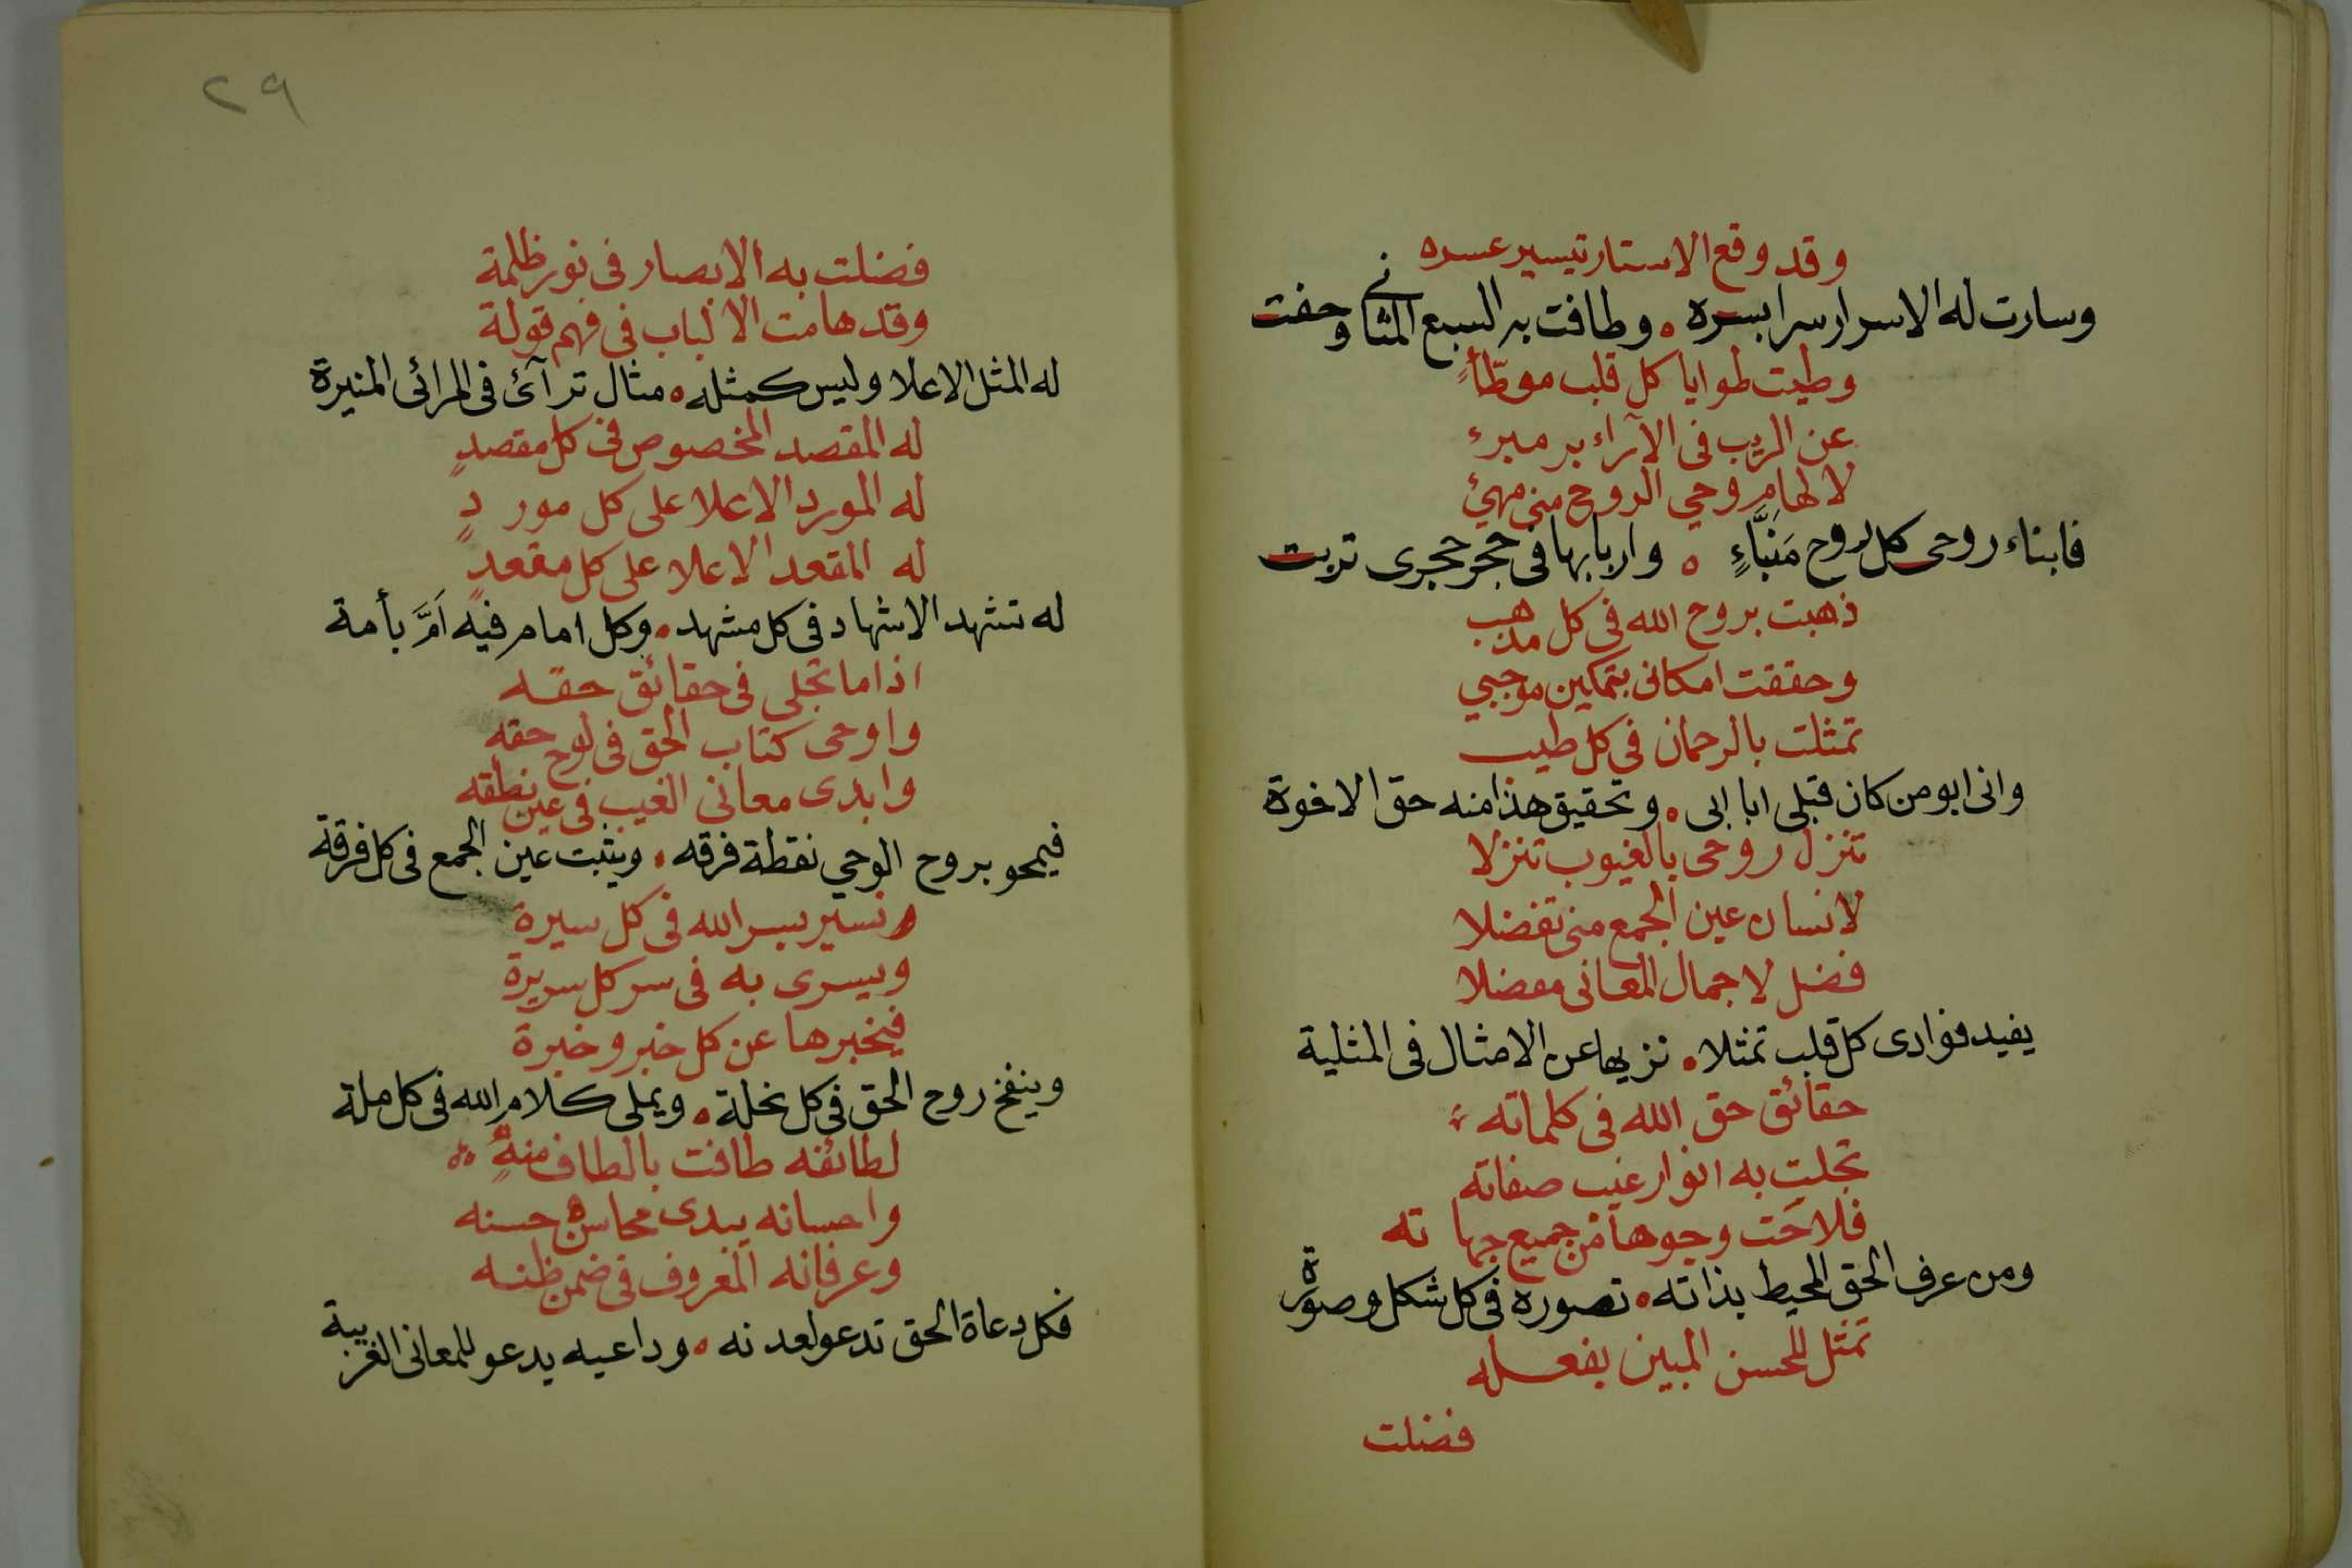 وقد وقع الاستار تيسير عسره
وسارت له الاسرار سرا بسره ه وطافت به السبع المثاني وحفت
وطيت طوايا كل قلب موطّأٍ
عن الريب في الآراء بر مبرء
لالهام روحي الروح مني مهيئ
فابناء روحى كل روح مَنَبَّاءٍ ه واربابها في حجر حجرى تربت
ذهبت بروح الله في كل مذهب
وحققت امكانى بتمكين موجبي
تمثلت بالرحمان في كل طيب
وانى ابو من كان قبلى ابا ابى ه وتحقيق هذا منه حق الاخوة
تنزل روحى بالغيوب تنزلا
لانسان عين الجمع منى تفضلا
فضل لاجمال المعانى مفضلا
يفيد فوادى كل قلب تمثلا ه نزيها عن الامثال في المثلية
حقائق حق الله في كلماته
تجلت به انوار غيب صفاته
فلاحَت وجوها من جميع جهاته
ومن عرف الحق المحيط بذاته ه تصوره في كل شكل وصورة
تمثل للحسن المبين بفعله
فضلت
٢٩
فضلت به الابصار في نور ظلمة
وقد هامت الالباب في فهم قولة
له المثل الاعلا وليس كمثله ه مثال ترآئ في المرائى المنيرة
له المقصد المخصوص في كل مقصدٍ
له المورد الاعلا على كل موردٍ
له المقعد الاعلا على كل مقعدٍ
له تشهد الاشهاد في كل مشهد ه وكل امام فيه اَمَّ بأمة
اذا ما تجلى في حقائق حقه
واوحى كتاب الحق في لوح حقه
وابدى معانى الغيب في عين نطقه
فيمحو بروح الوحي نقطة فرقه ه ويثبت عين الجمع في كل فرقة
ونسير بسر الله في كل سيرة
ويسرى به في سر كل سريرة
فيخبرها عن كل خبر وخبرة
وينفخ روح الحق في كل نحلة ه ويملى كلام الله في كل ملة
لطائفه طافت بالطاف منهٍ
واحسانه يبدى محاسن حسنه
وعرفانه المعروف في ضمن ظنه
فكل دعاة الحق تدعو لعدنه ه وداعيه يدعو للمعانى الغريبة